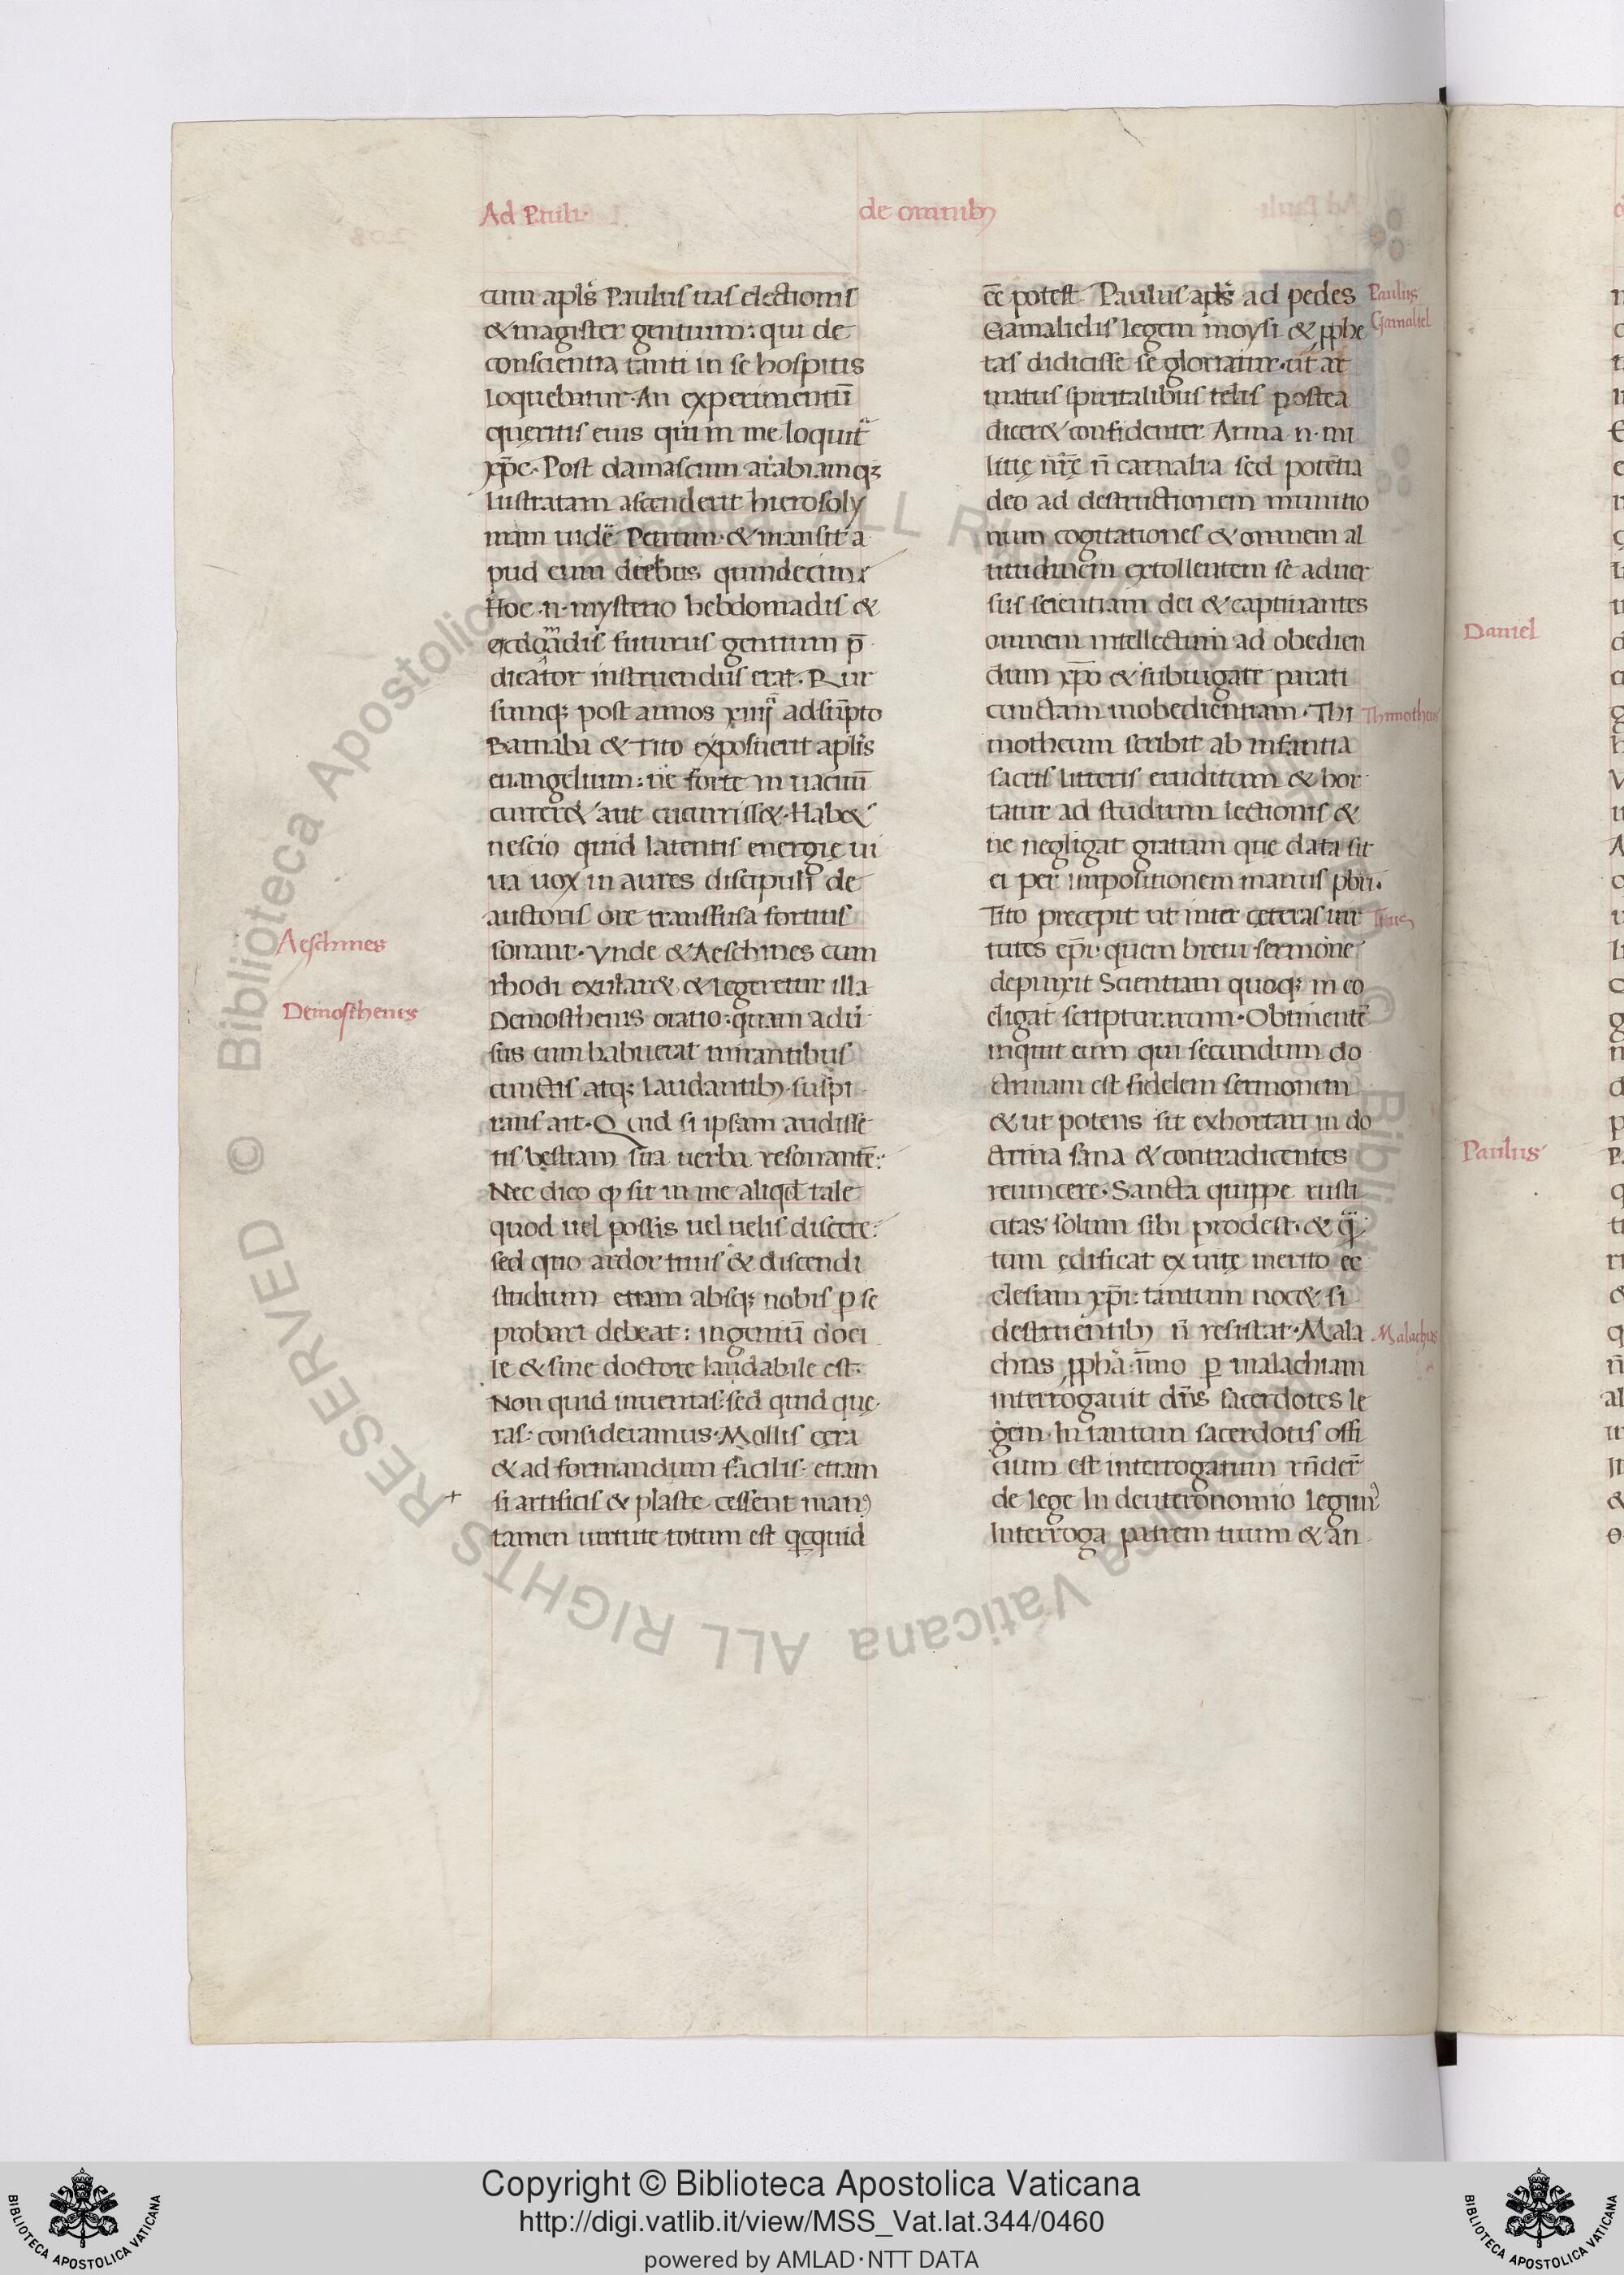 Ad Pauli·
de omnib;
cum apłs Paulus uas electionis
& magister gentium: qui de
conscientia tanti in se hospitis
loquebatur· An experimentū
queritis eius qui in me loquit̃
xp̄c· Post damascum arabiamq;
lustratam ascenderit hierosoly
mam uidē Petrum· & mansit a
pud eum diebus quindecim;
Hoc ·n· mysterio hebdomadis &
ogdoadis futurus gentium p̄
dicator instruendus erat· Rur
sumq; post annos xiiii adsūpto
Barnaba & Tito exposuerit aplīs
euangelium: ne forte in uacuū
curreret aut cucurrisset· Habet
nescio quid latentis energię ui
ua uox in aures discipuli de
auctoris ore transfusa fortius
sonant· Vnde & Aeschines cum
rhodi exularet & legeretur illa
Demosthenis oratio: quam adū
sus eum habuerat mirantibus
cunctis atq; laudantib; suspi
rans ait· Quid si ipsam audisse
tis bestiam sua uerba resonantē:
Nec dico ꝙ sit in me aliqđ tale
quod uel possis uel uelis discere:
sed quo ardor tuus & discendi
studium etiam absq; nobis p se
probari debeat: ingeniū doci
le & sine doctore laudabile est·
Non quid inuenias: sed quid que
ras: consideramus· Mollis cera
& ad formandum facilis· etiam
+ si artificis & plaste cessent man᾽
tamen uirtute totum est q̄cquid
Aeschines
Demosthenes
ēē potest· Paulus apłs ad pedes
Gamalielis legem moysi & ꝓphe
tas didicisse se gloriatur· ut ar
matus spiritalibus telis postea
diceret confidenter Arma ·n· mi
litię nr̄ę n̄ carnalia sed potētia
deo ad destructionem munitio
num cogitationes & omnem al
titudinem extollentem se aduer
sus scientiam dei & captiuantes
omnem intellectum ad obedien
dum xp̄o & subiugare parati
cunctam inobedientiam· Thi
motheum scribit ab infantia
sacris litteris eruditum & hor
tatur ad studium lectionis &
ne negligat gratiam que data sit
ei per impositionem manus pbri·
Tito precepit ut inter ceteras uir
tutes ep̄i· quem breui sermone
depinxit Scientiam quoq; in eo
eligat scripturarum· Obtinentē
inquit eum qui secundum do
ctrinam est fidelem sermonem
& ut potens sit exhortari in do
ctrina sana & contradicentes
reuincere· Sancta quippe rusti
citas solum sibi prodest· & q̄
tum edificat ex uitę merito ec
clesiam xp̄i: tantum nocet si
destruentib; n̄ resistat· Mala
chias ꝓpha· īmo p malachiam
interrogauit dn̄s sacerdotes le
gem· In tantum sacerdotis offi
cium est interrogatum rn̄der̄
de lege In deuteronomio legim᾽
Interroga patrem tuum & an
Paulus
Gamaliel
Thimotheus
Titus
Malachias
Daniel
Paulus
Copyright © Biblioteca Apostolica Vaticana
http://digi.vatlib.it/view/MSS_Vat.lat.344/0460
powered by AMLAD·NTT DATA
BIBLIOTECA APOSTOLICA VATICANA
BIBLIOTECA APOSTOLICA VATICANA
© Biblioteca Apostolica Vaticana ALL RIGHTS RESERVED © Biblioteca Apostolica Vaticana ALL RIGHTS RESERVED